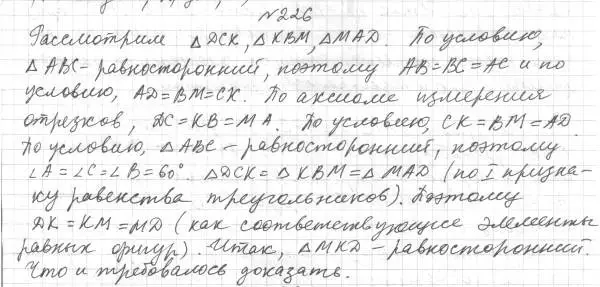 №226
Рассмотрим △DCK, △KBM, △MAD. По условию,
△ABC - равносторонний, поэтому AB=BC=AC и по
условию, AD=BM=CK. По аксиоме измерения
отрезков, DC=KB=MA. По условию, CK=BM=AD.
По условию, △ABC - равносторонний, поэтому
∠A=∠C=∠B=60°. △DCK=△KBM=△MAD (по I призна-
ку равенства треугольников). Поэтому
DK=KM=MD (как соответствующие элементы
равных фигур). Итак, △MKD - равносторонний.
Что и требовалось доказать.